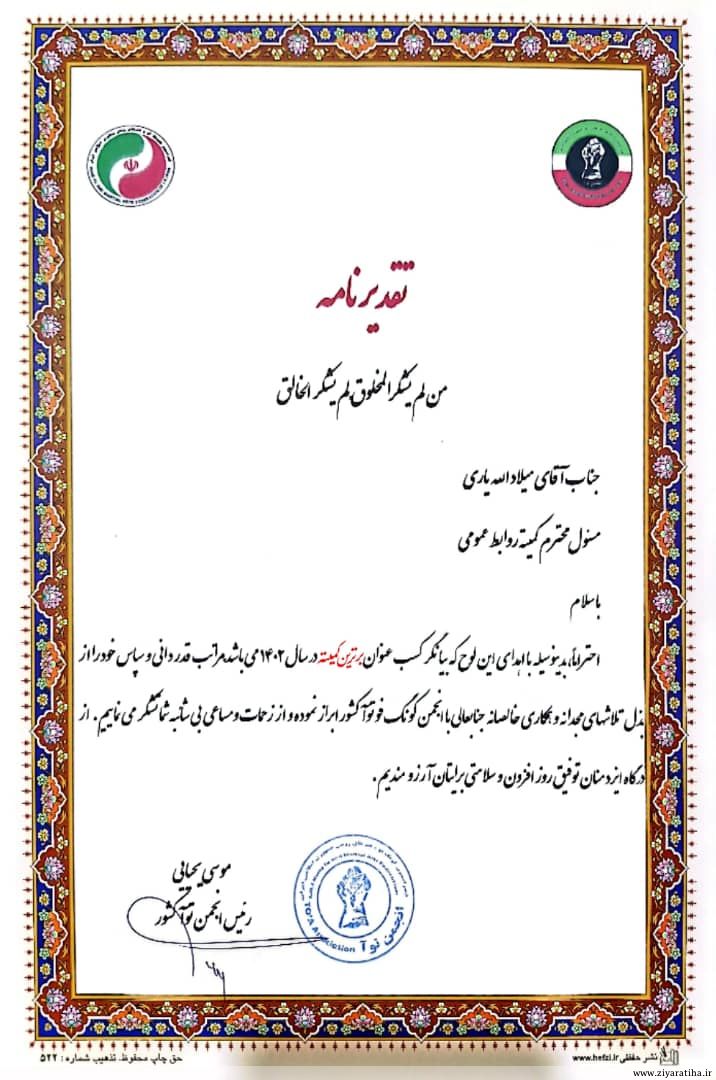 تقدیرنامه
من لم یشکر المخلوق لم یشکر الخالق
جناب آقای میلاد الله یاری
مسئول محترم کمیته روابط عمومی
با سلام
احتراما، بدینوسیله با اهدای این لوح که بیانگر کسب عنوان برترین کمیته در سال ۱۴۰۲ می باشد، مراتب قدردانی و سپاس خود را از
بذل تلاشهای مجدانه و همکاری خالصانه جنابعالی با انجمن کونگ فو توآ کشور ابراز نموده و از زحمات و مساعی بی شائبه شما تشکر می نماییم. از
درگاه ایزد منان توفیق روز افزون و سلامتی برایتان آرزو مندیم.
موسی یحیایی
رئیس انجمن توآ کشور
انجمن توآ
TOA Association
نشر حفظی www.hefzi.ir
حق چاپ محفوظ. تذهیب شماره: ۵۲۲
www.ziyaratiha.ir